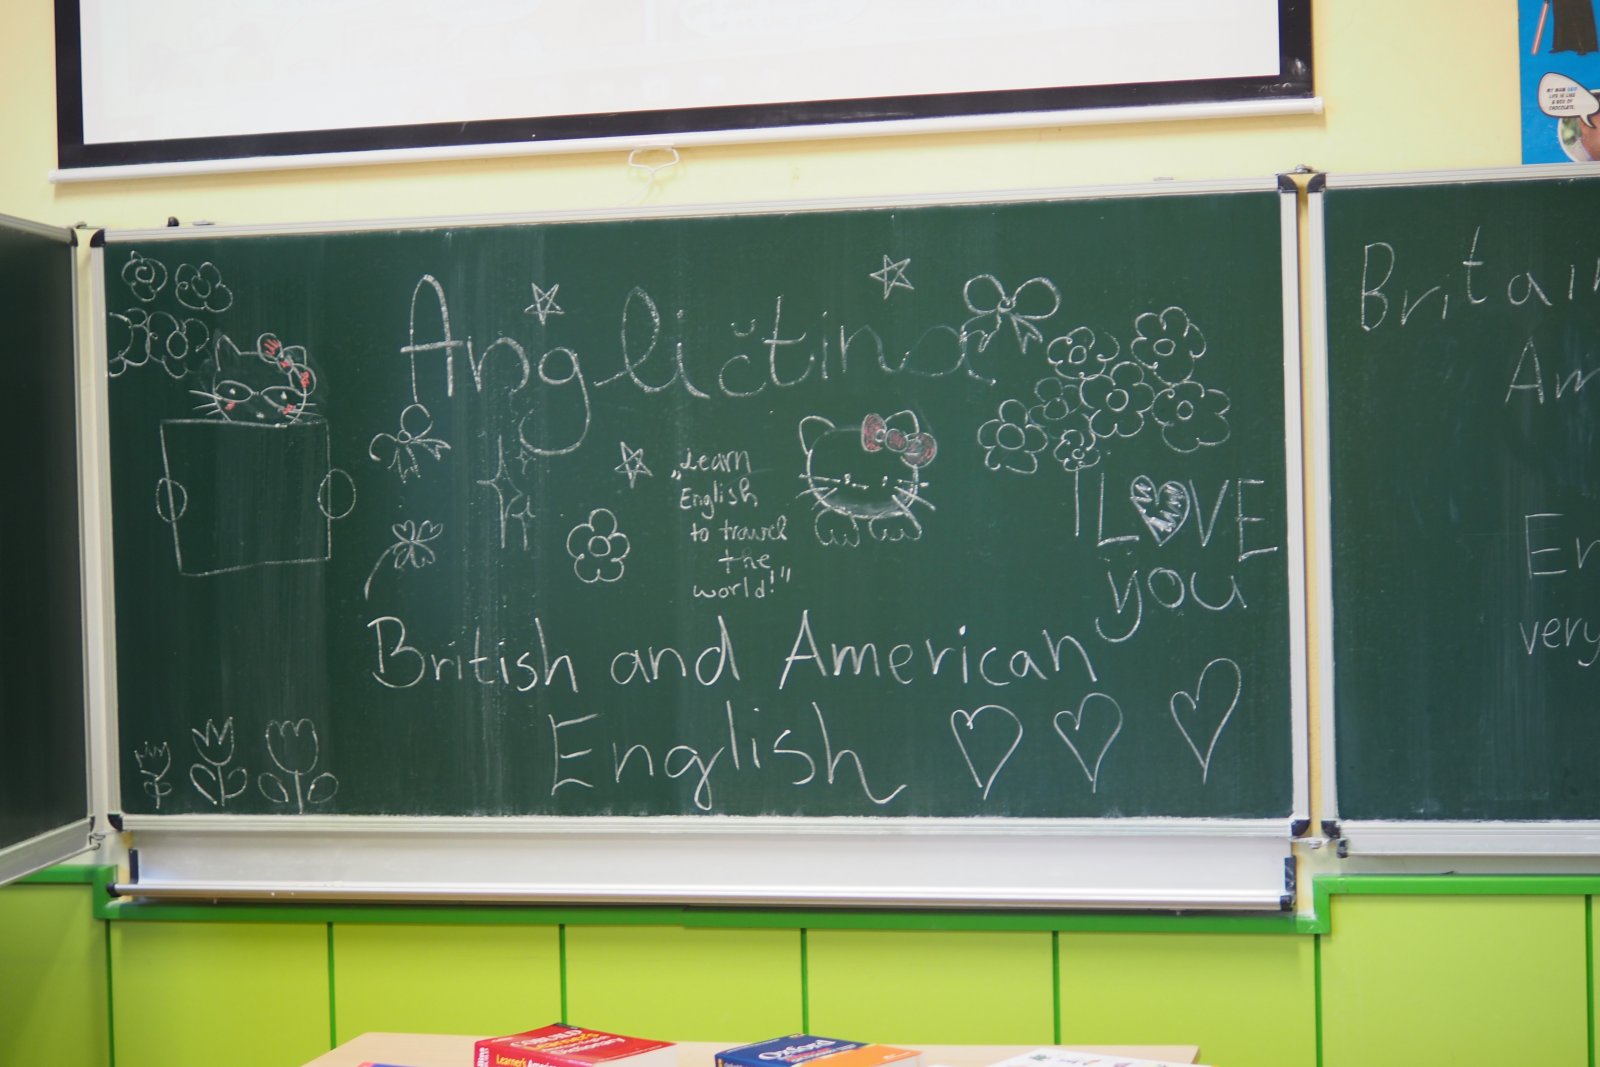 MY MAM SAID
LIFE IS LIKE
A BOX OF
CHOCOLATE.
Angličtina
„Learn
English
to travel
the
world!"
I LOVE
you
British and American
English
Britain
Am
En
very
COBUILD
Learner's
Dictionary
Learner's
Oxford